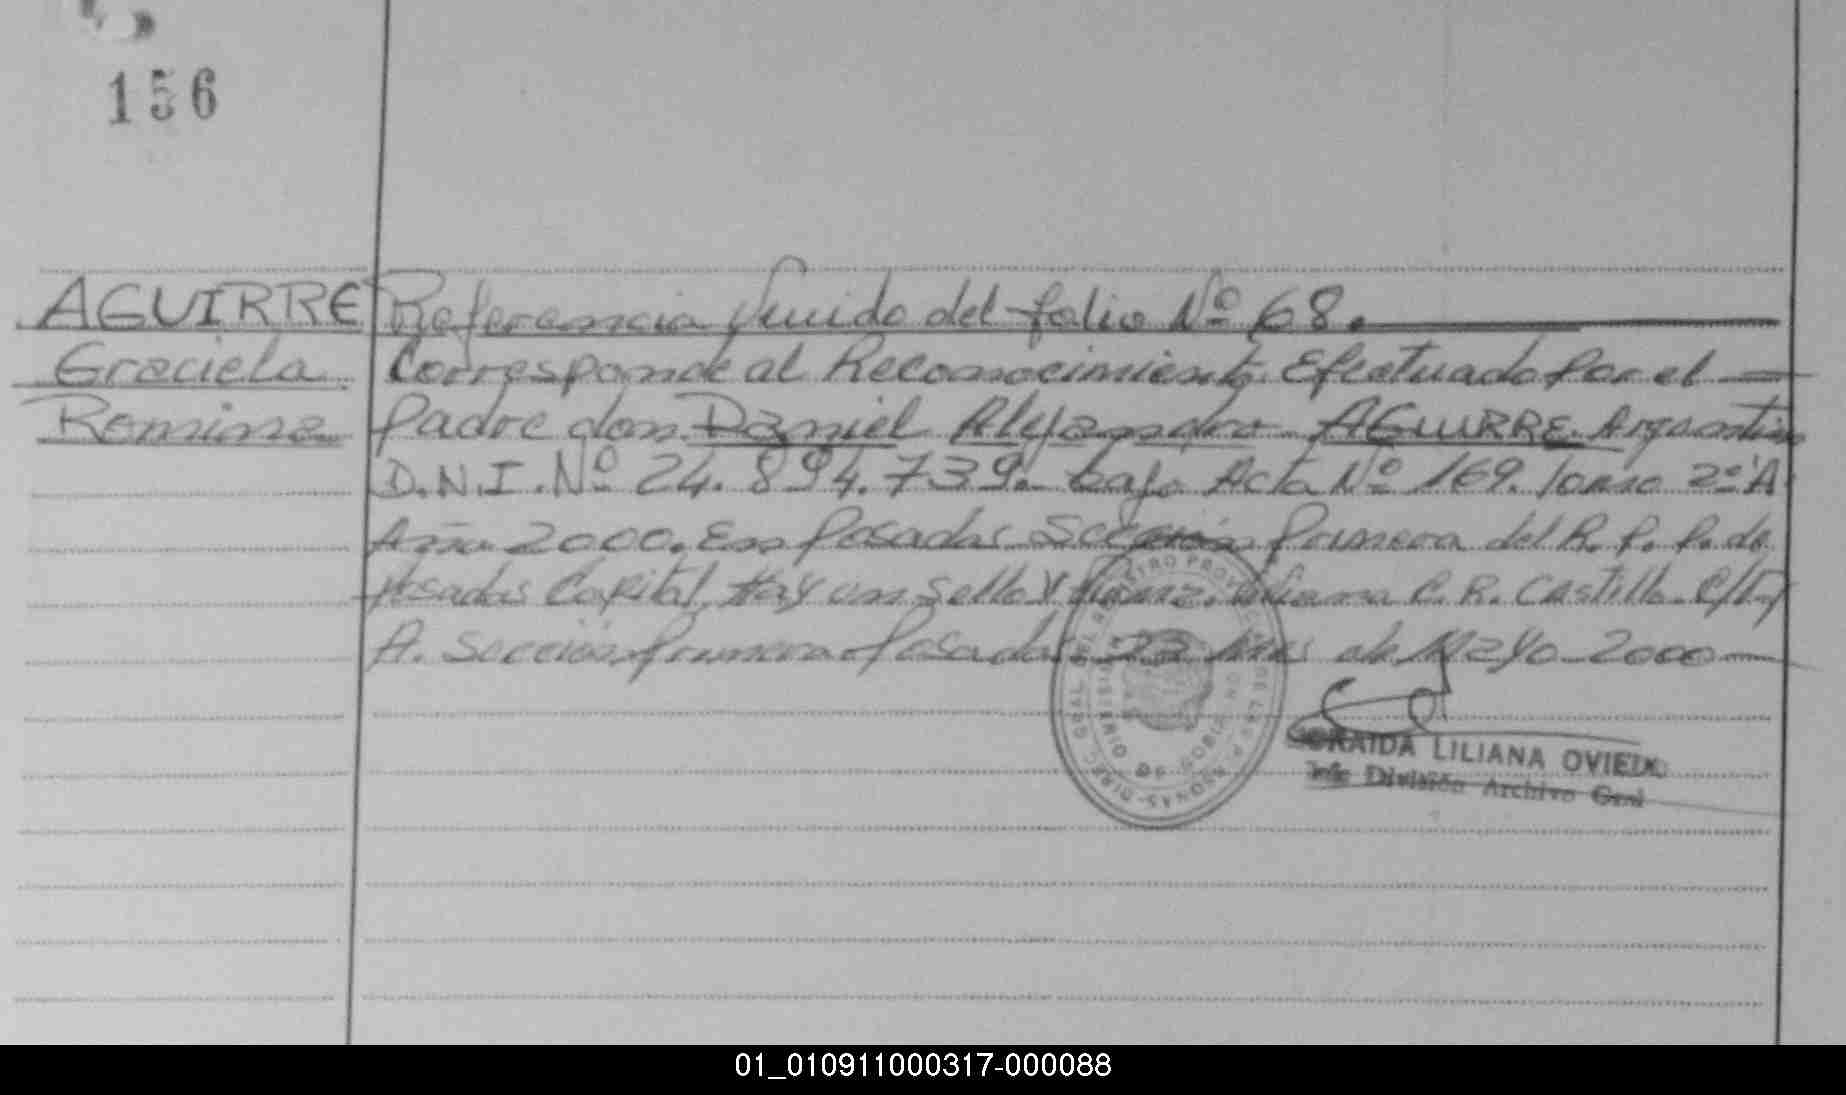 156
AGUIRRE
Graciela
Romina
Referencia venido del folio Nº 68.
Corresponde al Reconocimiento Efectuado por el
padre don Daniel Alejandro AGUIRRE Argentino
D.N.I. Nº 24.894.739. bajo Acta Nº 169. Tomo 2º "A"
Año 2000. En Posadas Sección primera del R. P. P. de
Posadas Capital Hay un sello y firma. Liliana C. R. Castillo.
A. Sección primera Posadas 23 de Mayo 2000
LILIANA OVIEDO
Jefe División Archivo Gral
01_010911000317-000088